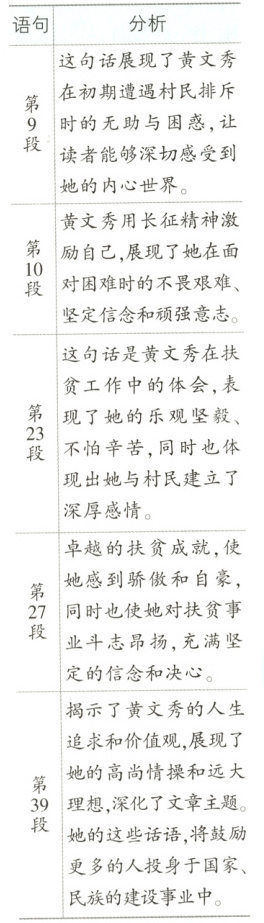 语句 分析
第9段
这句话展现了黄文秀
在初期遭遇村民排斥
时的无助与困惑,让
读者能够深切感受到
她的内心世界。
第10段
黄文秀用长征精神激
励自己,展现了她在面
对困难时的不畏艰难、
坚定信念和顽强意志。
第23段
这句话是黄文秀在扶
贫工作中的体会,表
现了她的乐观坚毅、
不怕辛苦,同时也体
现出她与村民建立了
深厚感情。
第27段
卓越的扶贫成就,使
她感到骄傲和自豪,
同时也使她对扶贫事
业斗志昂扬,充满坚
定的信念和决心。
第39段
揭示了黄文秀的人生
追求和价值观,展现了
她的高尚情操和远大
理想,深化了文章主题。
她的这些话语,将鼓励
更多的人投身于国家、
民族的建设事业中。